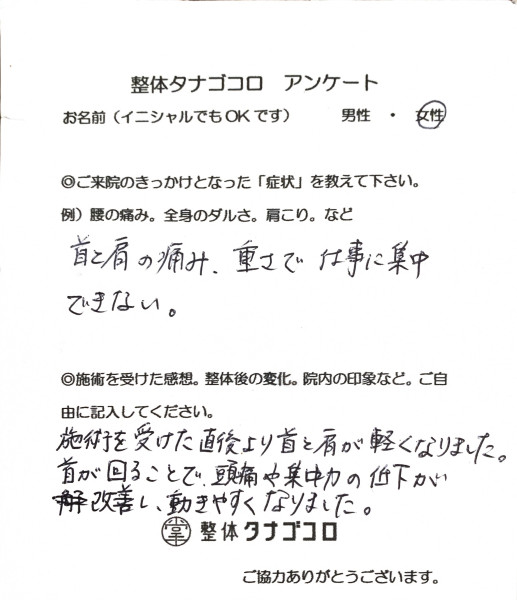 整体タナゴコロ アンケート
お名前（イニシャルでもOKです） 男性 ・ 女性
◎ご来院のきっかけとなった「症状」を教えて下さい。
例）腰の痛み。全身のダルさ。肩こり。など
首と肩の痛み、重さで仕事に集中
できない。
◎施術を受けた感想。整体後の変化。院内の印象など。ご自
由に記入してください。
施術を受けた直後より首と肩が軽くなりました。
首が回ることで、頭痛や集中力の低下が
改善し、動きやすくなりました。
掌 整体タナゴコロ
ご協力ありがとうございます。